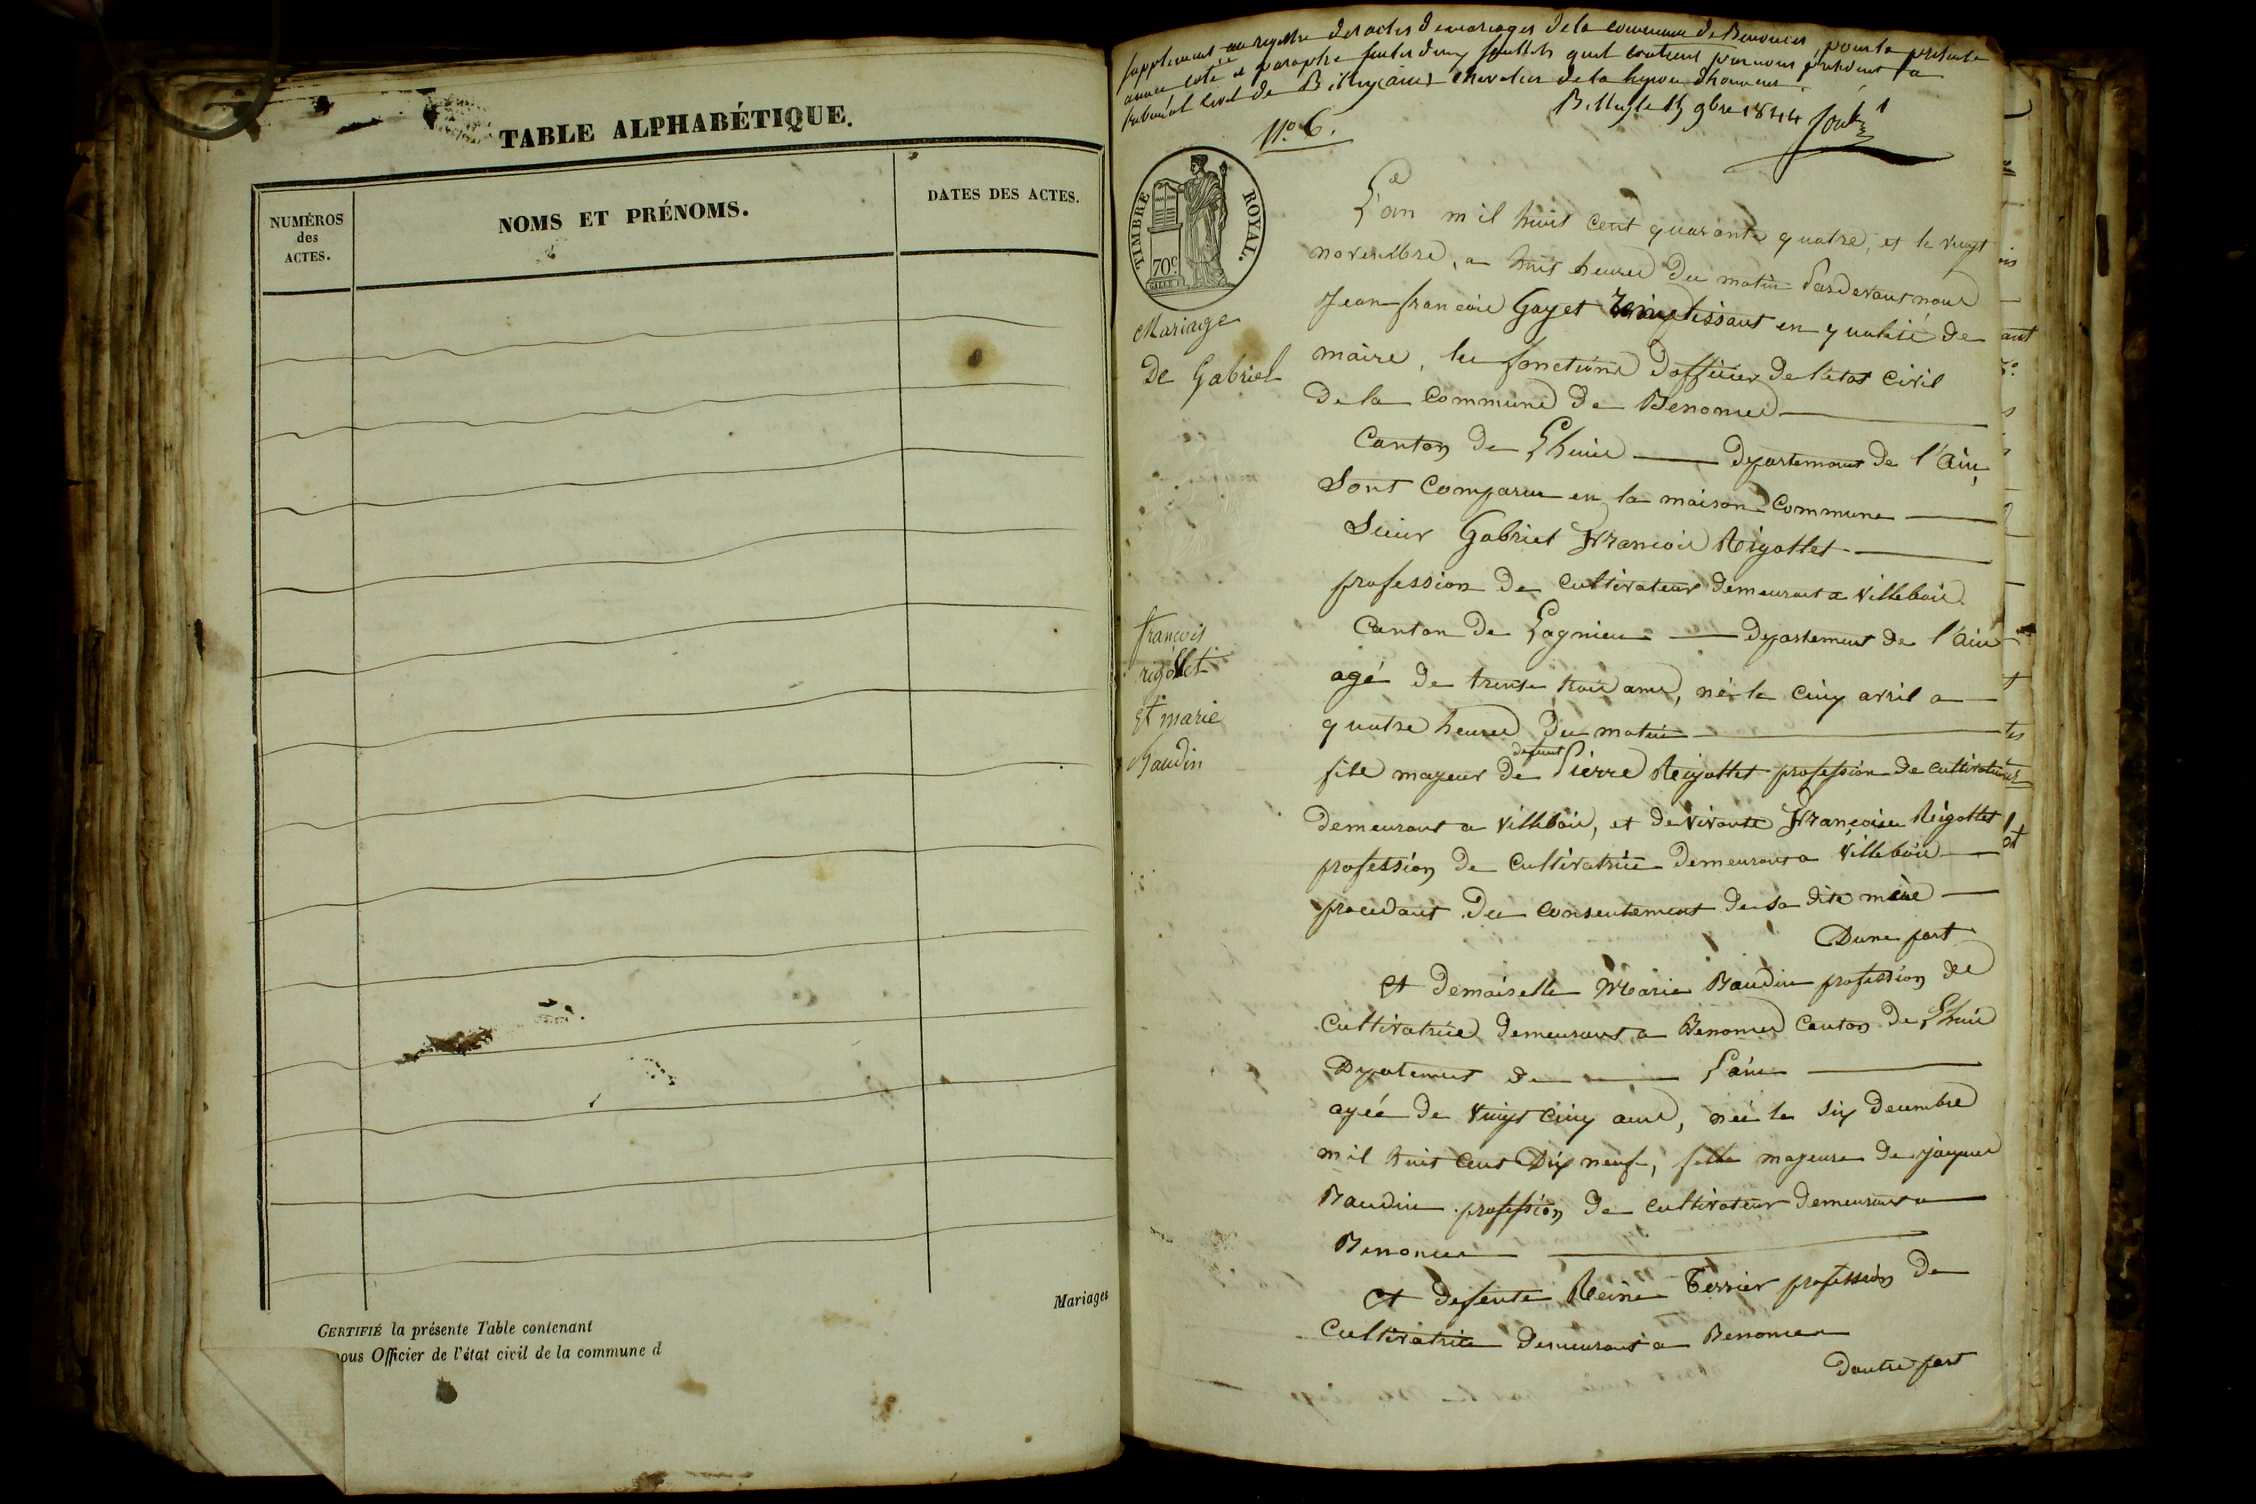 TABLE ALPHABÉTIQUE.
NUMÉROS
des
ACTES.
NOMS ET PRÉNOMS.
DATES DES ACTES.
Mariages
CERTIFIÉ la présente Table contenant
nous Officier de l'état civil de la commune d
supplement au registre des actes de mariages de la commune de Benonces, pour la presente
année coté et paraphé feuillets quil contient par nous président du
tribunal civil de Belley (ain) chevalier de la legion d'honneur.
Belley le 15 9bre 1844
N° 6.
TIMBRE ROYAL.
70c
Mariage
De Gabriel
françois
rigollet
et marie
Baudin
L'an mil huit cent quarante quatre, et le vingt
novembre, a huit heures du matin Pardevant nous
Jean françois Gayet remplissant en qualité de
maire, les fonctions dofficier de l'etat civil
de la commune de Benonces
Canton de Lhuis departement de l'ain,
Sont comparus en la maison commune
Sieur Gabriel François Rigollet
profession de cultivateur demeurant a villebois
Canton de Lagnieu departement de l'ain
agé de trente trois ans, né le cinq avril a
quatre heures du matin
fils mageur de defunt Pierre Rigollet profession de cultivateur
demeurant a villebois, et de vivante Françoise Rigollet
profession de cultivatrice demeurant a villebois
procedant du consentement de sa dite mère
Dune part
Et demaiselle Marie Baudin profession de
cultivatrice demeurant a Benonces canton de Lhuis
Departement de L'ain
agée de vingt cinq ans, née le six decembre
mil huit cent dix neuf, fille mageure de jaques
Baudin profession de cultivateur demeurant a
Benonces
Et defunte Reine Terrier profession de
Cultivatrice demeurant a Benonces
Dautre part